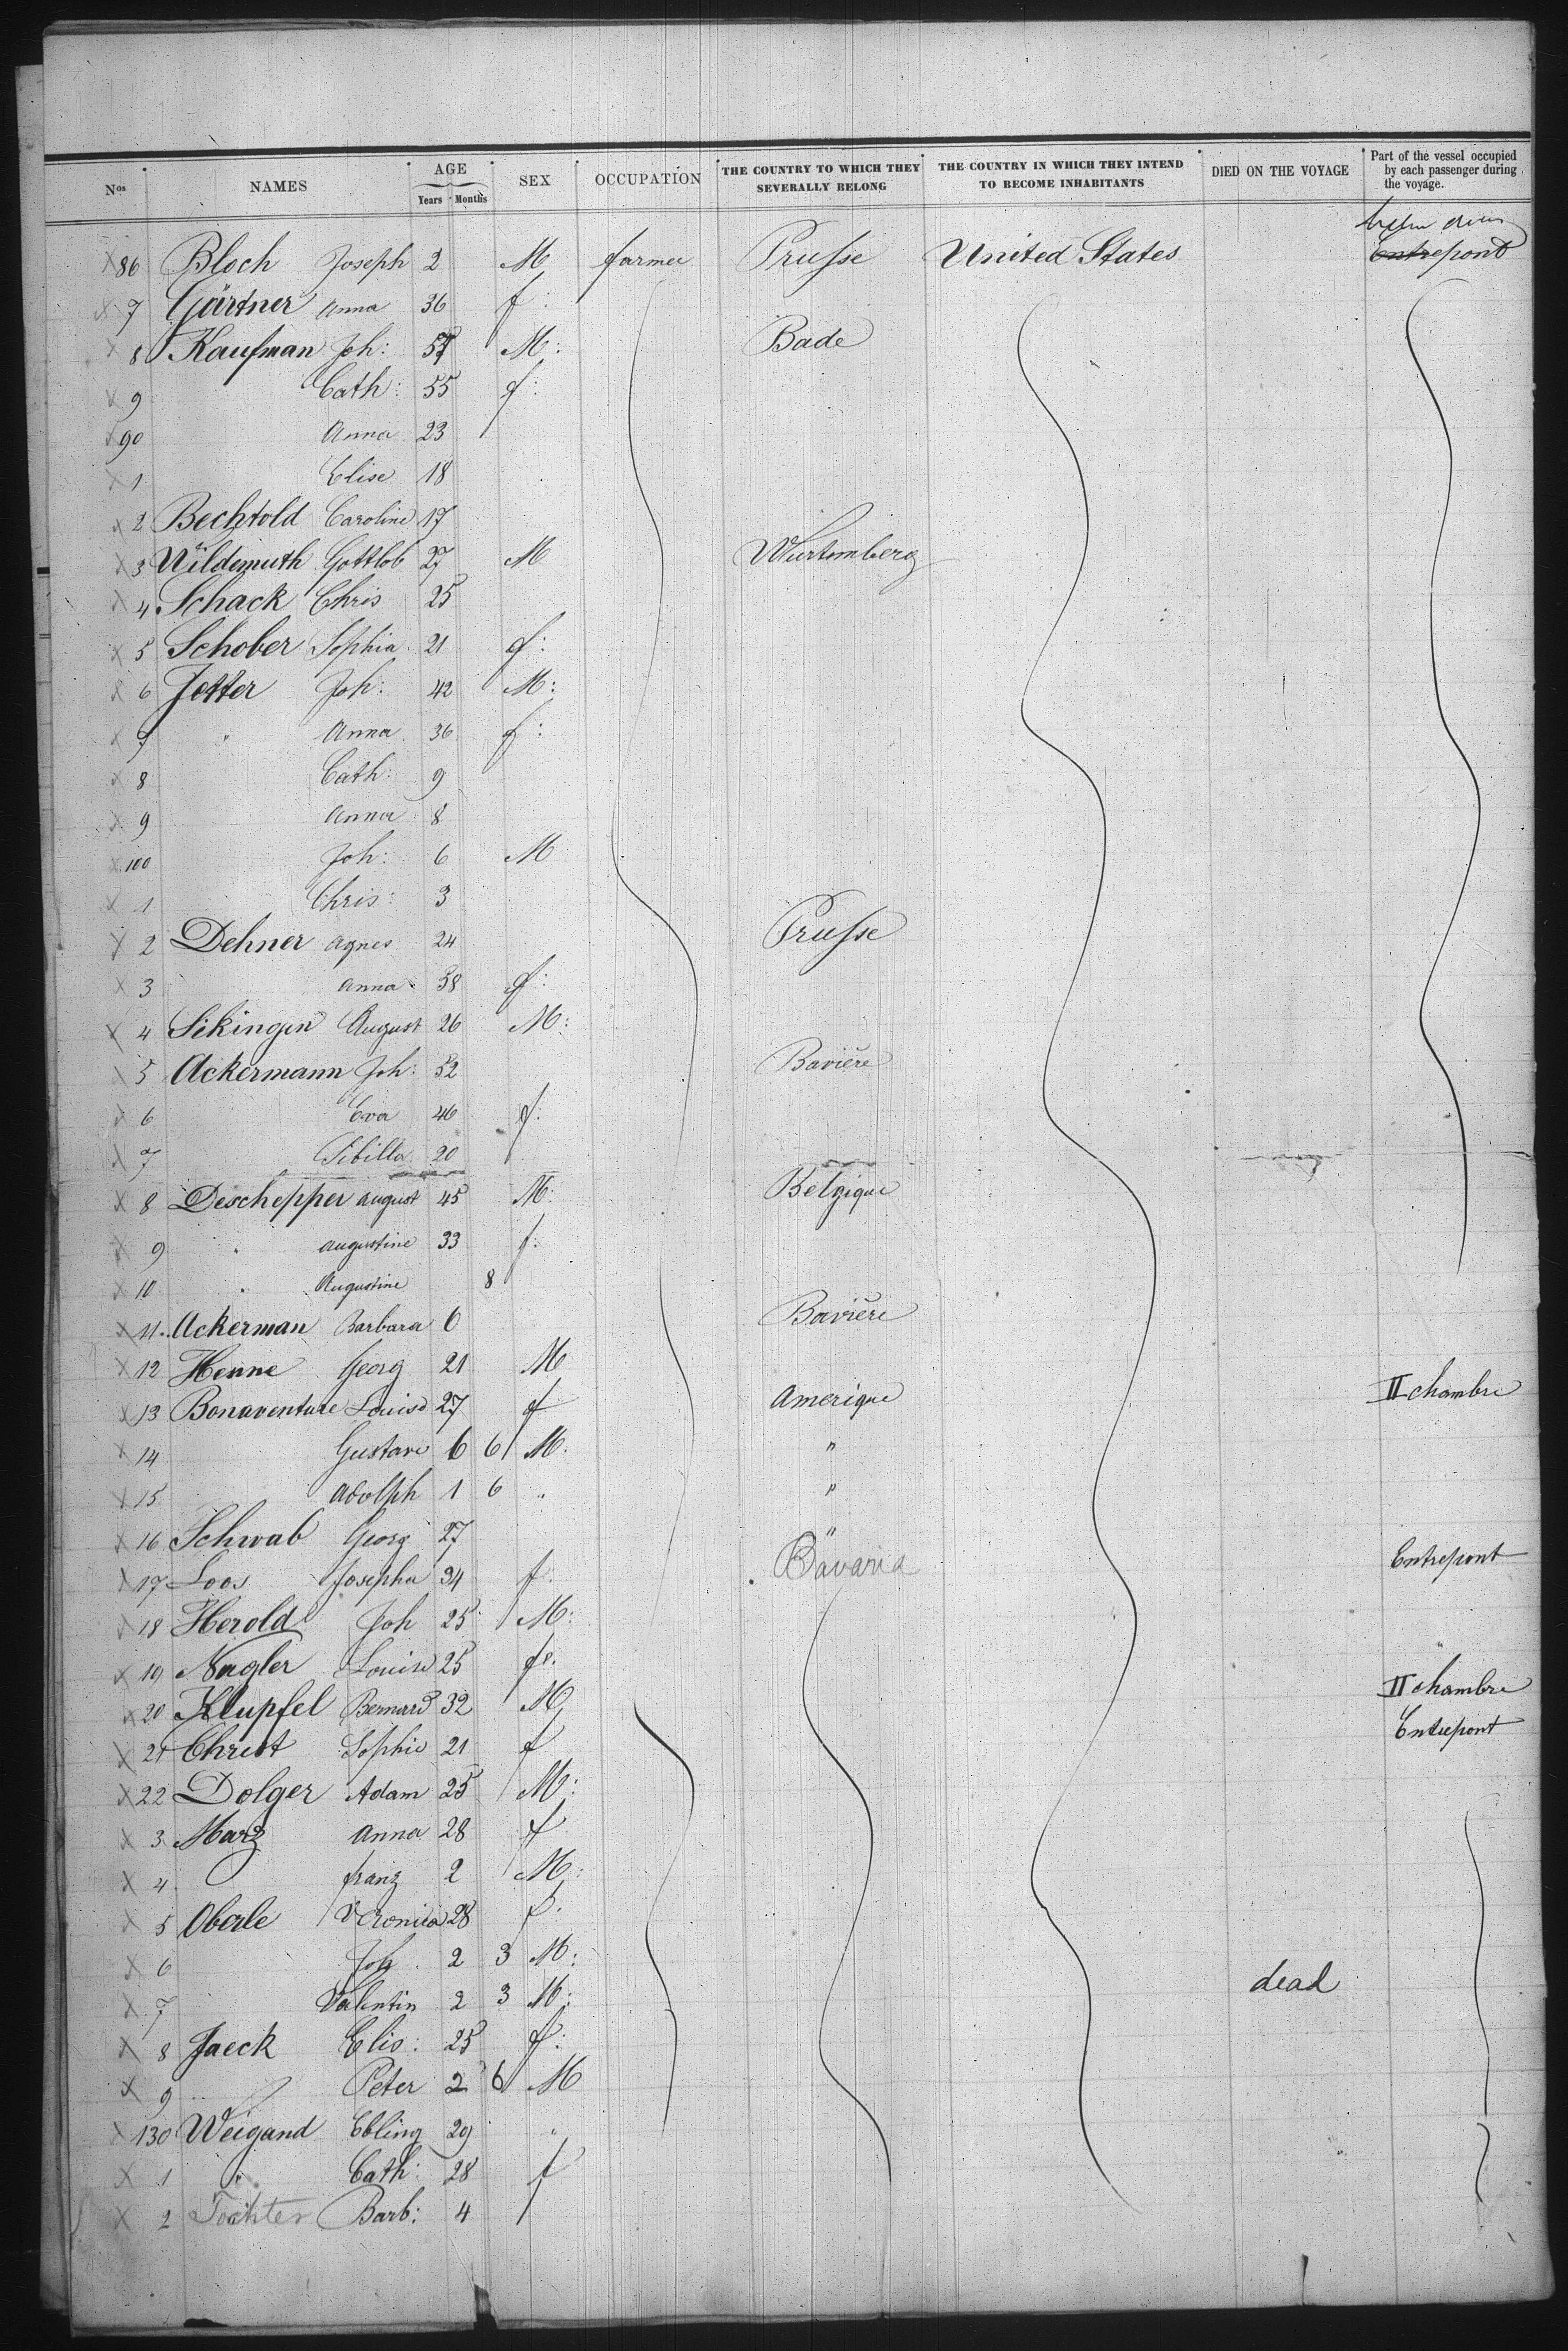 Nos NAMES AGE Years Months SEX OCCUPATION THE COUNTRY TO WHICH THEY SEVERALLY BELONG THE COUNTRY IN WHICH THEY INTEND TO BECOME INHABITANTS DIED ON THE VOYAGE Part of the vessel occupied by each passenger during the voyage.
86 Bloch Joseph 2 M farmer Prusse United States Entrepont
7 Gärtner Anna 36 f:
8 Kaufman Joh: M: Bade
9 Cath: 55 f:
90 Anna 23
1 Elise 18
2 Bechtold Caroline 17
3 Wildemuth Gottlob 27 M Wurtemberg
4 Schack Chris 25
5 Schober Sophia 21 f:
6 Jetter Joh: 42 M:
7 " Anna 36 f:
8 Cath: 9
9 Anna 8
100 Joh: 6 M
1 Chris: 3
2 Dehner Agnes 24 Prusse
3 Anna 58 f:
4 Sikingen August 26 M:
5 Ackermann Joh: 52 Bavière
6 Eva 46 f:
7 Sibilla 20
8 Deschepper August 45 M: Belgique
9 " Augustine 33 f:
10 " Augustine 8
11 Ackerman Barbara 6 Bavière
12 Henne Georg 21 M
13 Bonaventure Louise 27 f Amerique II chambre
14 Gustave 6 6 M. "
15 Adolph 1 6 " "
16 Schwab Georg 27 "
17 Loos Josepha 34 f. Bavaria Entrepont
18 Herold Joh 25 M:
19 Nagler Louise 25 fe.
20 Klupfel Bernard 32 M II chambre
21 Christ Sophie 21 f Entrepont
22 Dolger Adam 25 M:
3 Marz Anna 28 f
4 franz 2 M:
5 Oberle Veronica 28 f.
6 Joh. 2 3 M:
7 Valentin 2 3 M: dead
8 Jaeck Elis: 25 f:
9 Peter 2 6 M
130 Weigand Ebling 29 "
1 " Cath: 28 f
2 Tochter Barb: 4